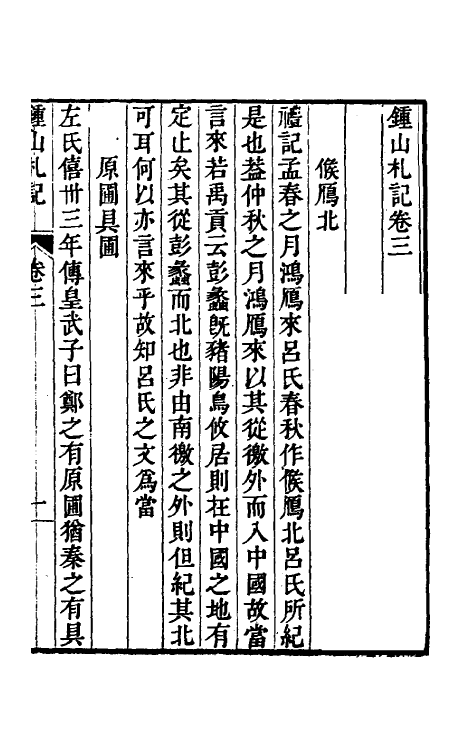 鍾山札記卷三
候鴈北
禮記孟春之月鴻鴈來呂氏春秋作候鴈北呂氏所紀
是也葢仲秋之月鴻鴈來以其從徼外而入中國故當
言來若禹貢云彭蠡旣豬陽鳥攸居則在中國之地有
定止矣其從彭蠡而北也非由南徼之外則但紀其北
可耳何以亦言來乎故知呂氏之文爲當
原圃具圃
左氏僖卅三年傳皇武子曰鄭之有原圃猶秦之有具
鍾山札記 卷三 一